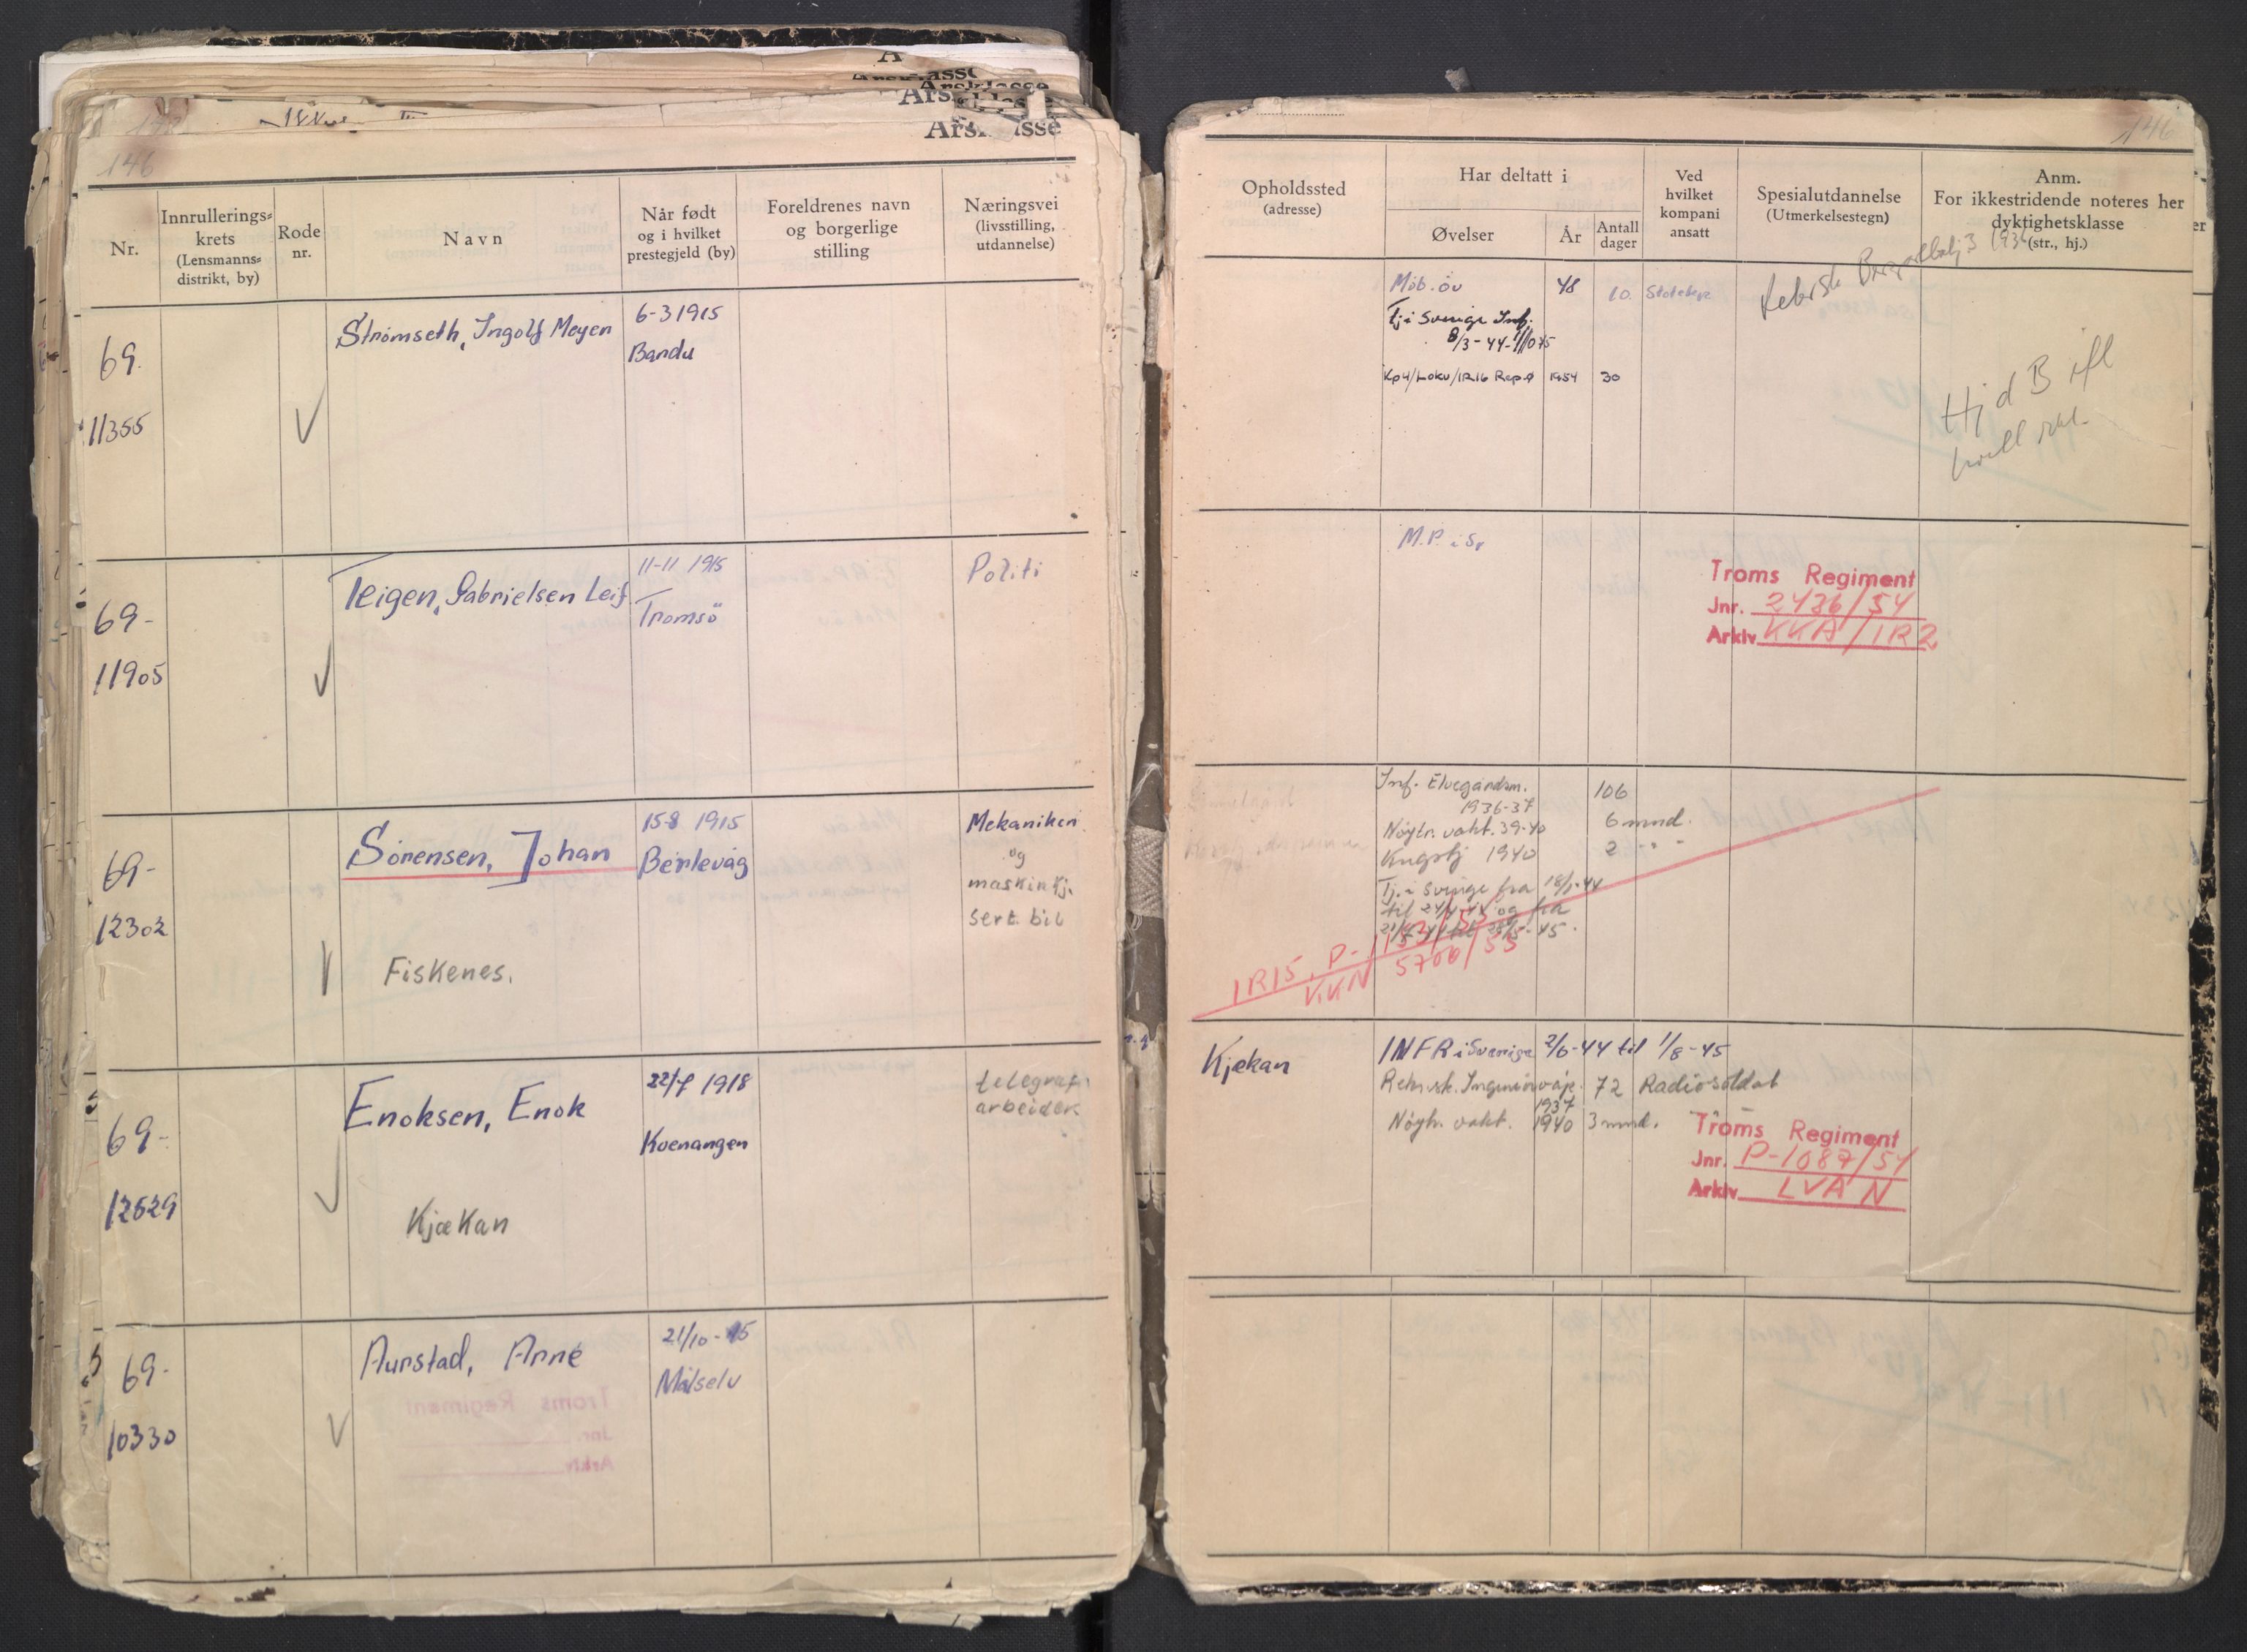 Årsklasse
146
Nr.
Innrullerings-
krets
(Lensmanns-
distrikt, by)
Rode
nr.
Navn
Når født
og i hvilket
prestegjeld (by)
Foreldrenes navn
og borgerlige
stilling
Næringsvei
(livsstilling,
utdannelse)
69.
11355
Strømseth, Ingolf Meyen
6-3 1915
Bardu
69-
11905
Teigen, Gabrielsen Leif
11-11 1915
Tromsö
Politi
69-
12302
Sørensen, Johan
Fiskenes.
15-8 1915
Berlevåg
Mekaniker
og
maskinkj.
sert. bil
69-
12629
Enoksen, Enok
Kjækan
22/7 1918
Kvenangen
telegraf-
arbeider
69-
10330
Aunstad, Arne
21/10-15
Målselv
146
Opholdssted
(adresse)
Har deltatt i
Øvelser
År
Antall
dager
Ved
hvilket
kompani
ansatt
Spesialutdannelse
(Utmerkelsestegn)
Anm.
For ikkestridende noteres her
dyktighetsklasse
(str., hj.)
Mob. öv 48 10
Rekrsk 1936
Tj i Sverige Inf.
8/3-44-
Kp4/Loku/IR16 Rep.ø 1954 30
Hjd B
M.P. i Sv
Troms Regiment
Jnr. 2436/54
Arkiv KKA/IR2
Inf. Elvegårdsm. 106
1936-37
Nøytr. vakt. 39-40 6 mnd.
Krigstj 1940 2 " "
Tj. i Sverige fra 18/1-44
til og fra
IR15. P-
KKN 5700/55
Kjekan
INFR i Sverige 2/6-44 til 1/8-45
Rekr.sk. Ingeniørvåp. 72 Radiosoldat
1937
Nøytr. vakt. 1940 3 mnd.
Troms Regiment
Jnr. P-1087/54
Arkiv LVAN